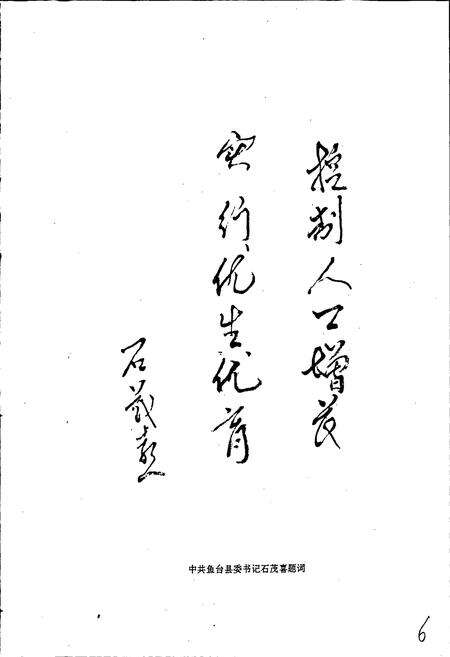 控制人口增长
实行优生优育
石茂喜
中共鱼台县委书记石茂喜题词
6